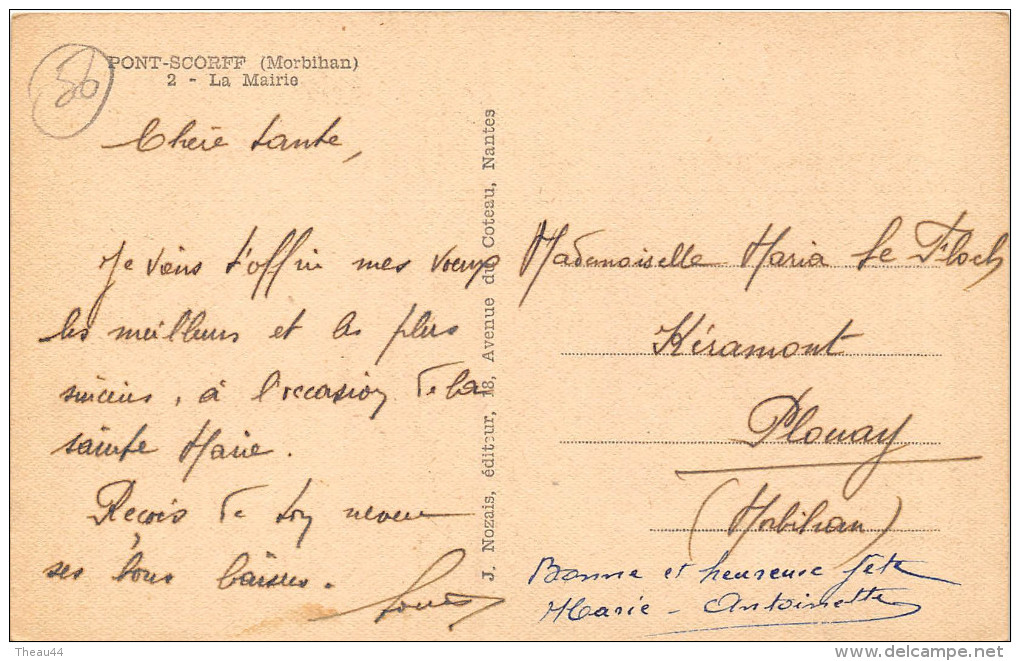 56
PONT-SCORFF (Morbihan)
2 - La Mairie
Chère tante,
Je viens t'offrir mes voeux
les meilleurs et les plus
sincères, à l'occasion de la
sainte Marie.
Reçois de ton neveu
ses bons baisers.
J. Nozais, éditeur, 18, Avenue du Coteau, Nantes
Mademoiselle Maria Le Floch
Kéramont
Plouay
(Morbihan)
Bonne et heureuse fête
Marie-Antoinette
Theau44
www.delcampe.net